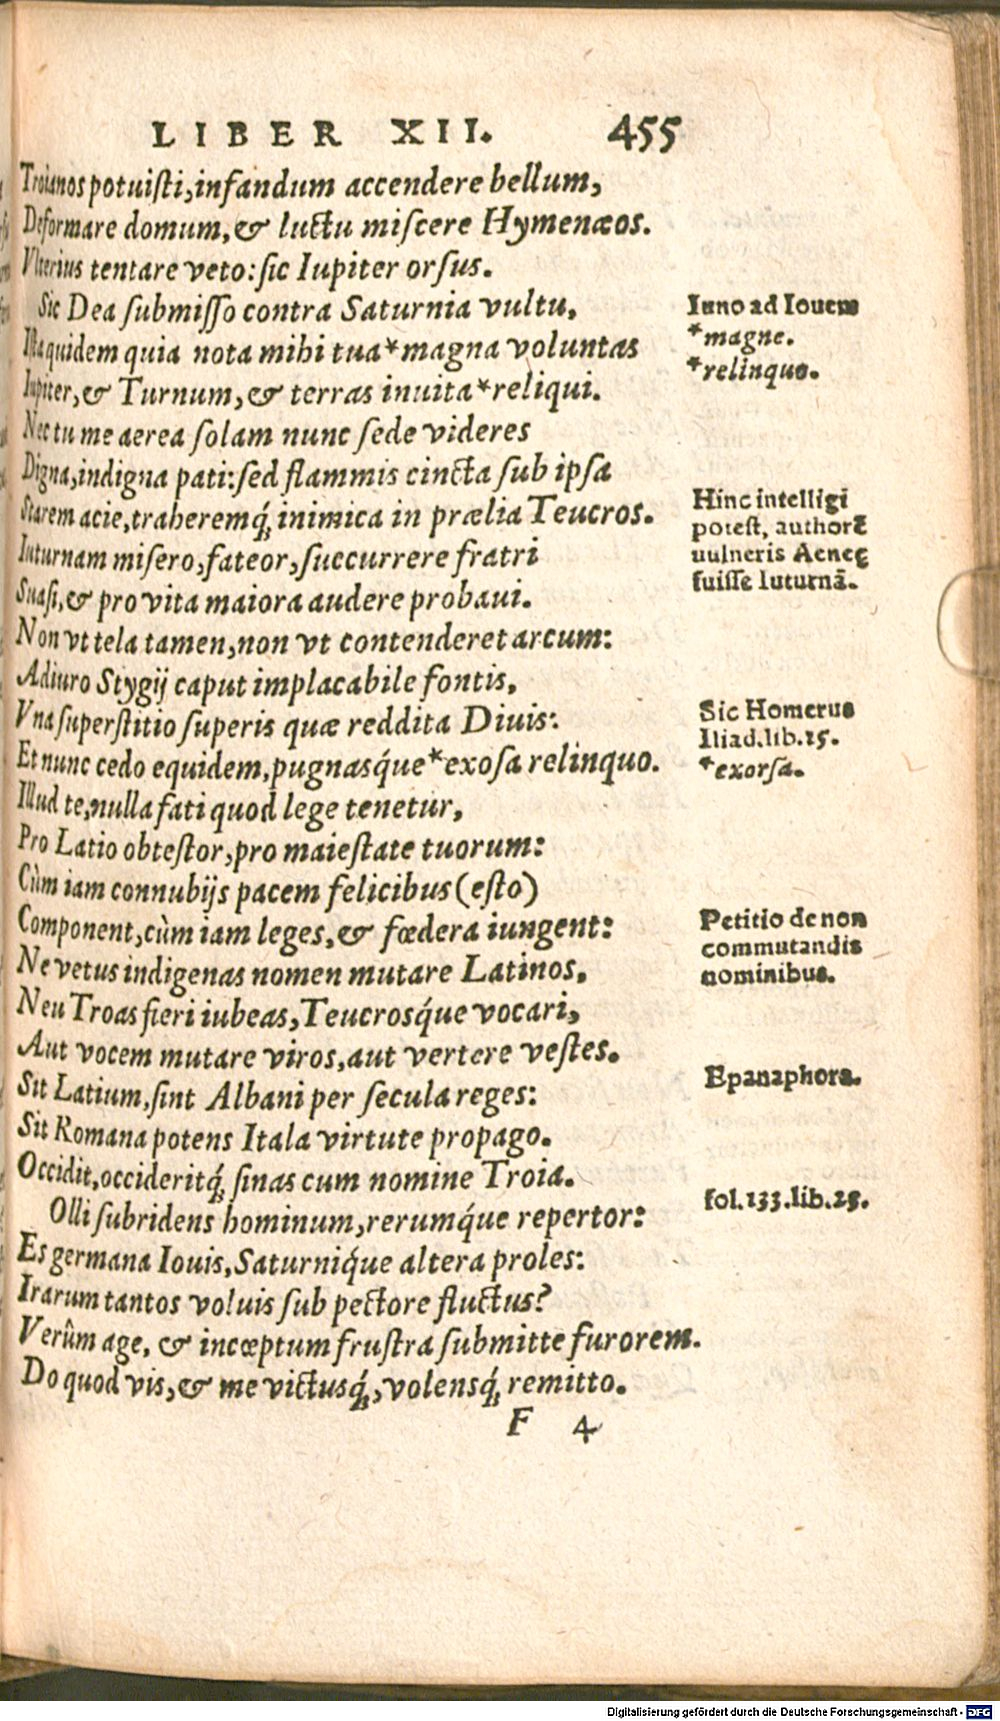 LIBER XII. 455
Troianos potuisti, infandum accendere bellum,
Deformare domum, & luctu miscere Hymenæos.
Vlterius tentare veto: sic Iupiter orsus.
Sic Dea submisso contra Saturnia vultu,
Ista quidem quia nota mihi tua *magna voluntas
Iupiter, & Turnum, & terras inuita *reliqui.
Nec tu me aerea solam nunc sede videres
Digna, indigna pati: sed flammis cincta sub ipsa
Starem acie, traheremq́; inimica in prælia Teucros.
Iuturnam misero, fateor, succurrere fratri
Suasi, & pro vita maiora audere probaui.
Non vt tela tamen, non vt contenderet arcum:
Adiuro Stygij caput implacabile fontis,
Vna superstitio superis quæ reddita Diuis:
Et nunc cedo equidem, pugnasq́ue *exosa relinquo.
Illud te, nulla fati quod lege tenetur,
Pro Latio obtestor, pro maiestate tuorum:
Cùm iam connubijs pacem felicibus (esto)
Component, cùm iam leges, & fœdera iungent:
Ne vetus indigenas nomen mutare Latinos,
Neu Troas fieri iubeas, Teucrosq́ue vocari,
Aut vocem mutare viros, aut vertere vestes.
Sit Latium, sint Albani per secula reges:
Sit Romana potens Itala virtute propago.
Occidit, occideritq́; sinas cum nomine Troia.
Olli subridens hominum, rerumq́ue repertor:
Es germana Iouis, Saturniq́ue altera proles:
Irarum tantos voluis sub pectore fluctus?
Verûm age, & incœptum frustra submitte furorem.
Do quod vis, & me victusq́;, volensq́; remitto.
F 4
Iuno ad Iouem
*magne.
*relinquo.
Hinc intelligi
potest, authorẽ
uulneris Aeneę
fuisse Iuturnã.
Sic Homerus
Iliad.lib.15.
*exorsa.
Petitio de non
commutandis
nominibus.
Epanaphora.
fol.133.lib.25.
Digitalisierung gefördert durch die Deutsche Forschungsgemeinschaft - DFG